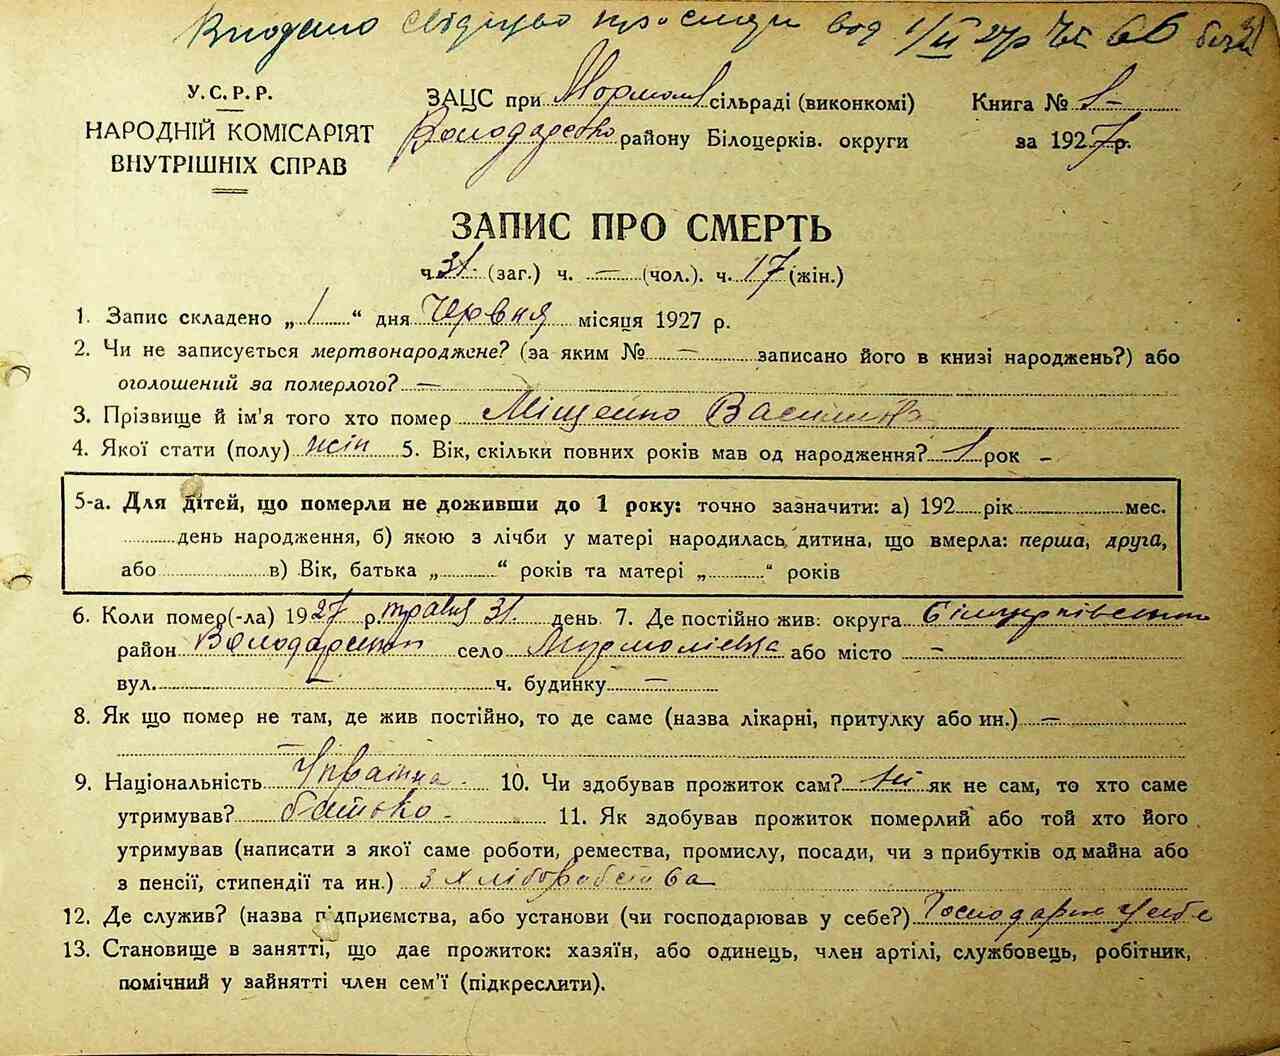 Видано свідоцтво про смерть 1/II 27р № 66
У.С.Р.Р.
НАРОДНІЙ КОМІСАРІЯТ
ВНУТРІШНІХ СПРАВ
ЗАЦС при Мормолів сільраді (виконкомі)
Володарсько району Білоцерків. округи
Книга № 1-
за 1927 р.
ЗАПИС ПРО СМЕРТЬ
ч. 31. (заг.) ч. — (чол.). ч. 17 (жін.)
1. Запис складено „ 1 “ дня Червня місяця 1927 р.
2. Чи не записується мертвонароджене? (за яким № — записано його в книзі народжень?) або
оголошений за померлого? —
3. Прізвище й ім'я того хто помер Міщенко
4. Якої стати (полу) жін 5. Вік, скільки повних років мав од народження? 1 рок -
5-а. Для дітей, що померли не доживши до 1 року: точно зазначити: а) 192 рік мес.
день народження, б) якою з лічби у матері народилась дитина, що вмерла: перша, друга,
або в) Вік, батька „ “ років та матері „ “ років
6. Коли помер(-ла) 1927 р. травня 31. день 7. Де постійно жив: округа Білоцерківська
район Володарський село Мормолівка або місто —
вул. — ч. будинку —
8. Як що помер не там, де жив постійно, то де саме (назва лікарні, притулку або ин.) —
—
9. Національність Українка. 10. Чи здобував прожиток сам? Ні як не сам, то хто саме
утримував? батько - 11. Як здобував прожиток померлий або той хто його
утримував (написати з якої саме роботи, ремества, промислу, посади, чи з прибутків од майна або
з пенсії, стипендії та ин.) з хліборобства
12. Де служив? (назва підприємства, або установи (чи господарював у себе?) Господарює у себе
13. Становище в занятті, що дає прожиток: хазяїн, або одинець, член артілі, службовець, робітник,
помічний у зайнятті член сем'ї (підкреслити).